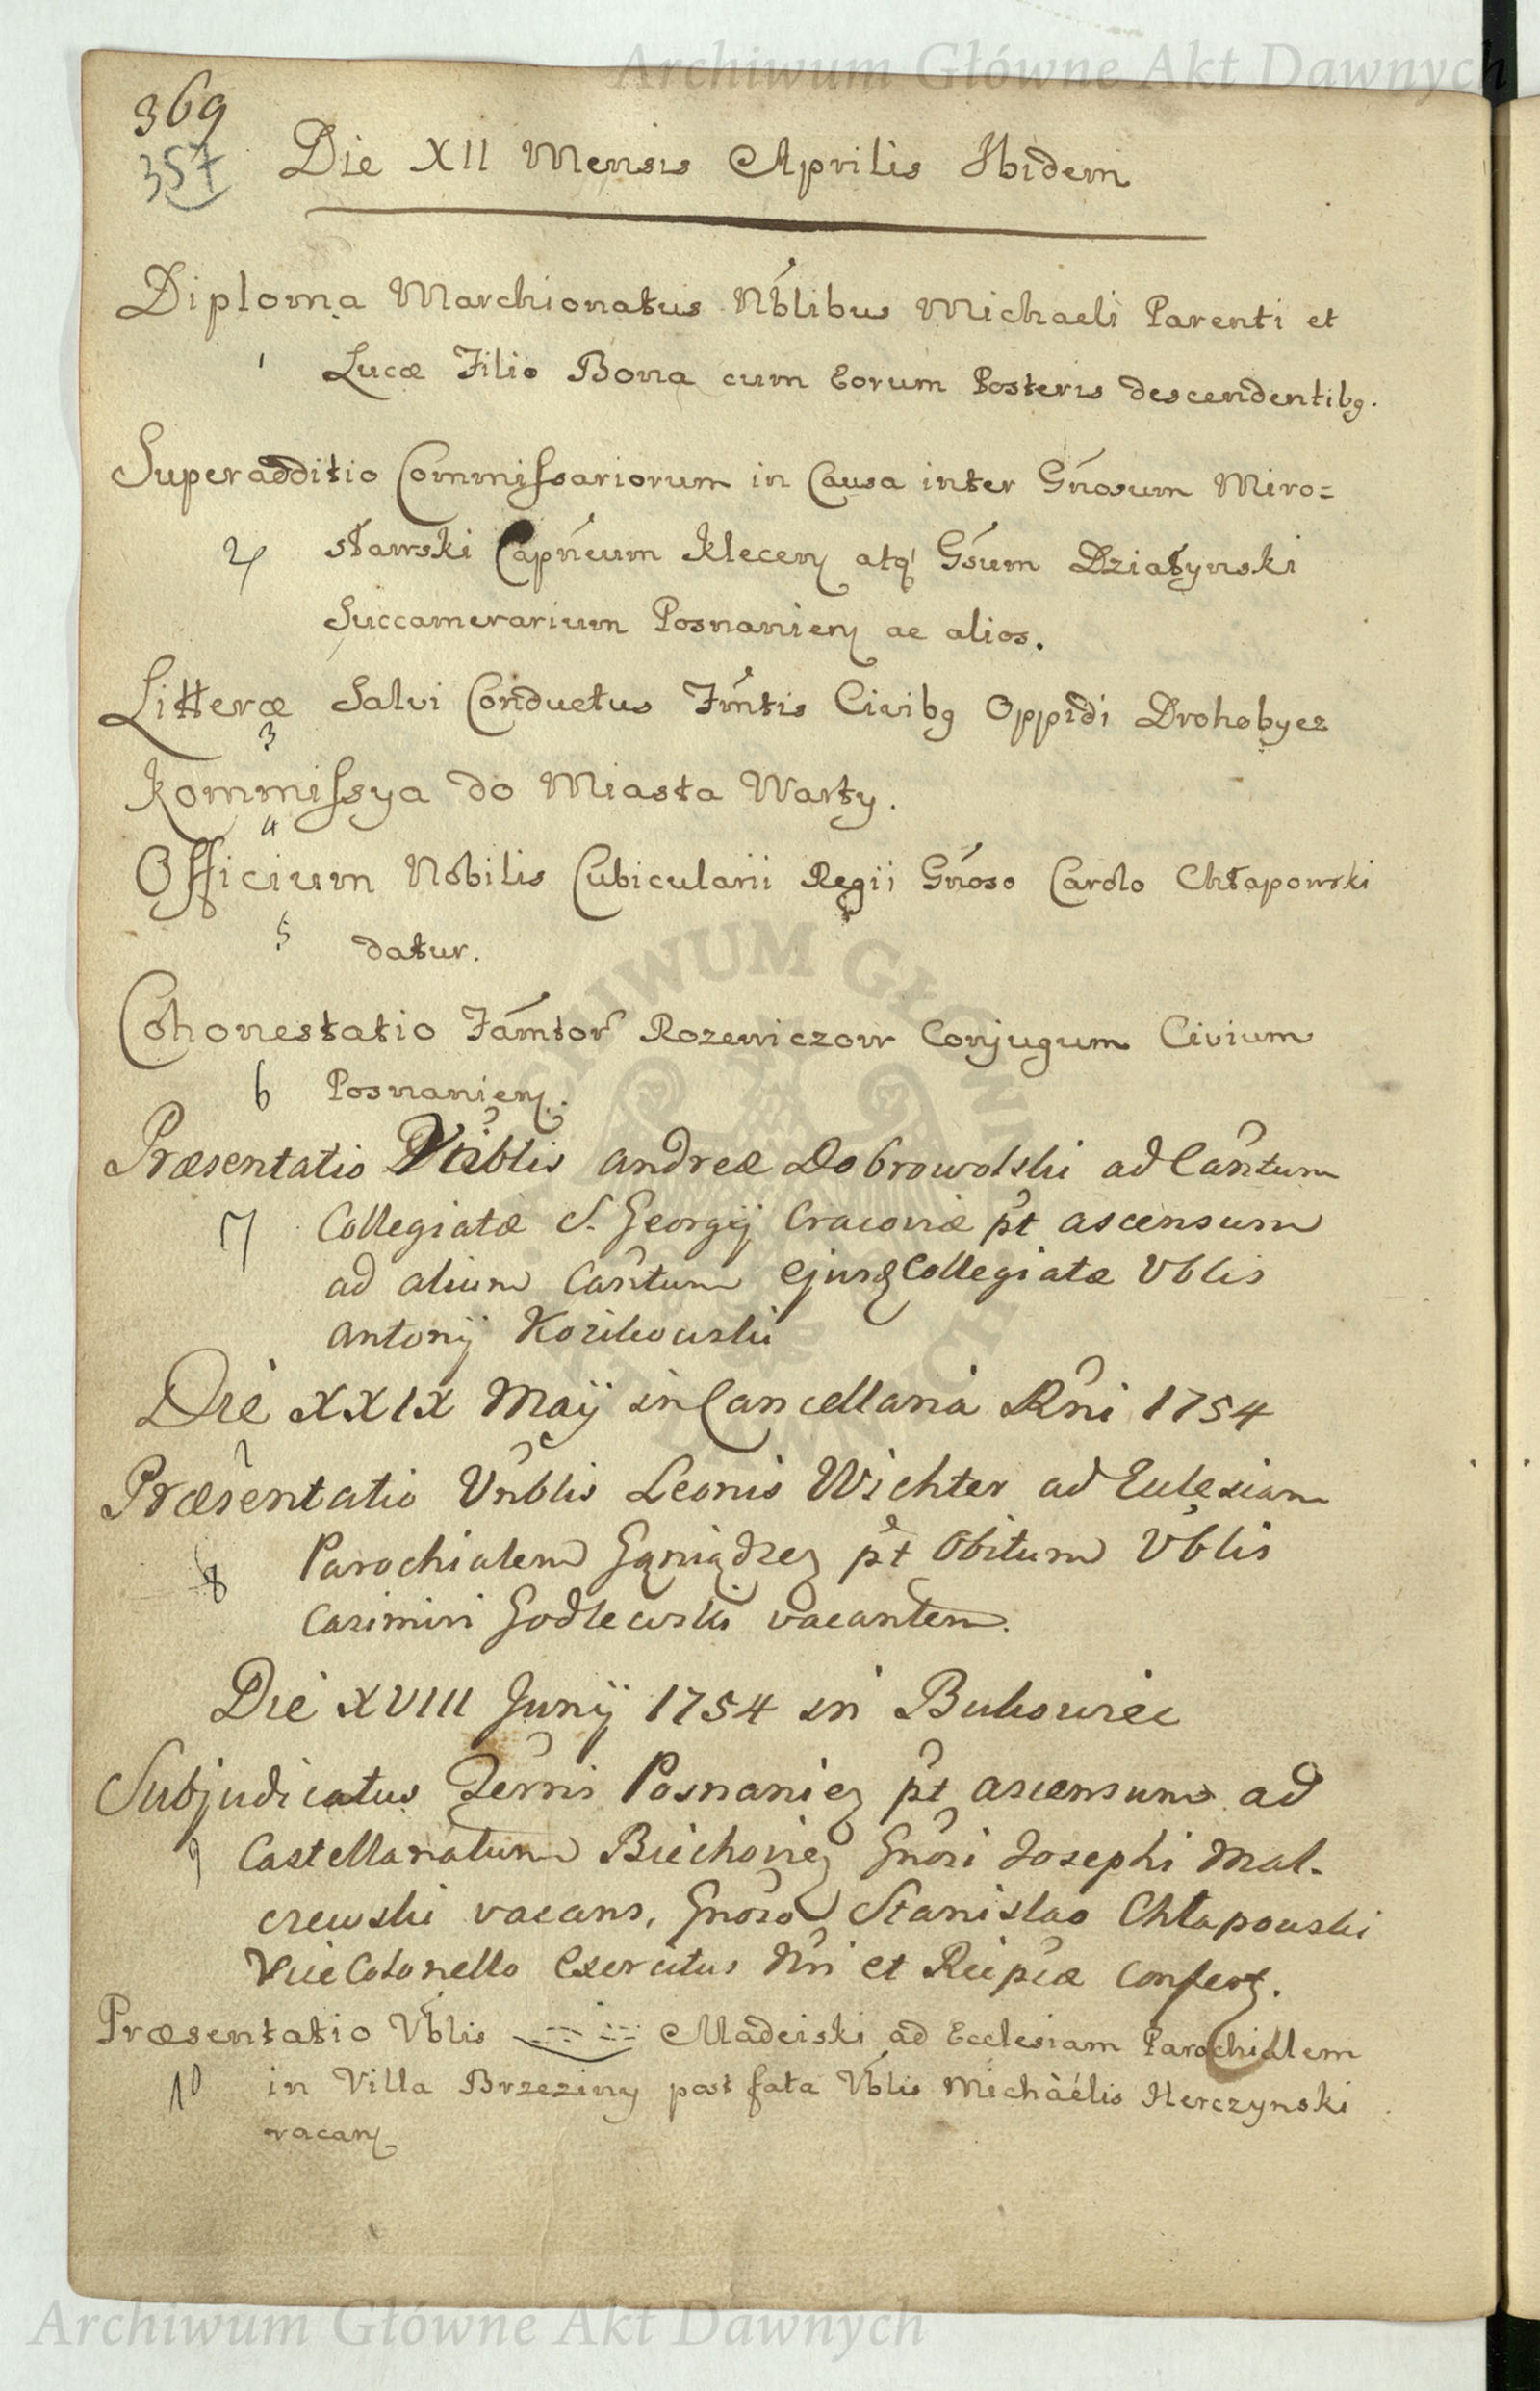 Archiwum Główne Akt Dawnych
369
357
Die XII Mensis Aprilis Ibidem
Diploma Marchionatus Nblibus Michaeli Parenti et
1 Lucæ Filio Bona cum Eorum Posteris descendentibq.
Superadditio Commissariorum in Causa inter Gnosum Miro=
2 sławski Capneum Klecen atq Gsum Działynski
Succamerarium Posnanien ac alios.
Litteræ Salvi Conductus Fmtis Civibq Oppidi Drohobycz
3
Kommissya do Miasta Warty.
4
Officium Nobilis Cubicularii Regii Gnoso Carolo Chłapowski
5 datur.
Cohonestatio Famtor Rozewiczow Conjugum Civium
6 Posnanien.
Præsentatio Vblis Andreæ Dobrowolski ad Cantum
7 Collegiatæ S. Georgij Cracoviæ pt ascensum
ad alium Cantum Ejusq Collegiatæ Vblis
Antonij Kozikowski
Die XXIX Maij in Cancellaria Rni 1754
Præsentatio Vnblis Leonis Wichter ad Ecclesiam
8 Parochialem Gąniądzez pt Obitum Vblis
Casimiri Godlewski vacantem.
Die XVIII Junij 1754 in Bukowiec
Subjudicatus Terrris Posnaniez pt ascensum ad
9 Castellanatum Biechoviez Gnosi Josephi Mal-
czewski vacans, Gnoso Stanislao Chłapowski
Vice Colonello Exercitus Rni et Reipcæ Confert.
Præsentatio Vblis Madeiski ad Ecclesiam Parochialem
10 in Villa Brzeziny post fata Vblis Michaélis Herczynski
vacan
ARCHIWUM GŁÓWNE AKT DAWNYCH
Archiwum Główne Akt Dawnych